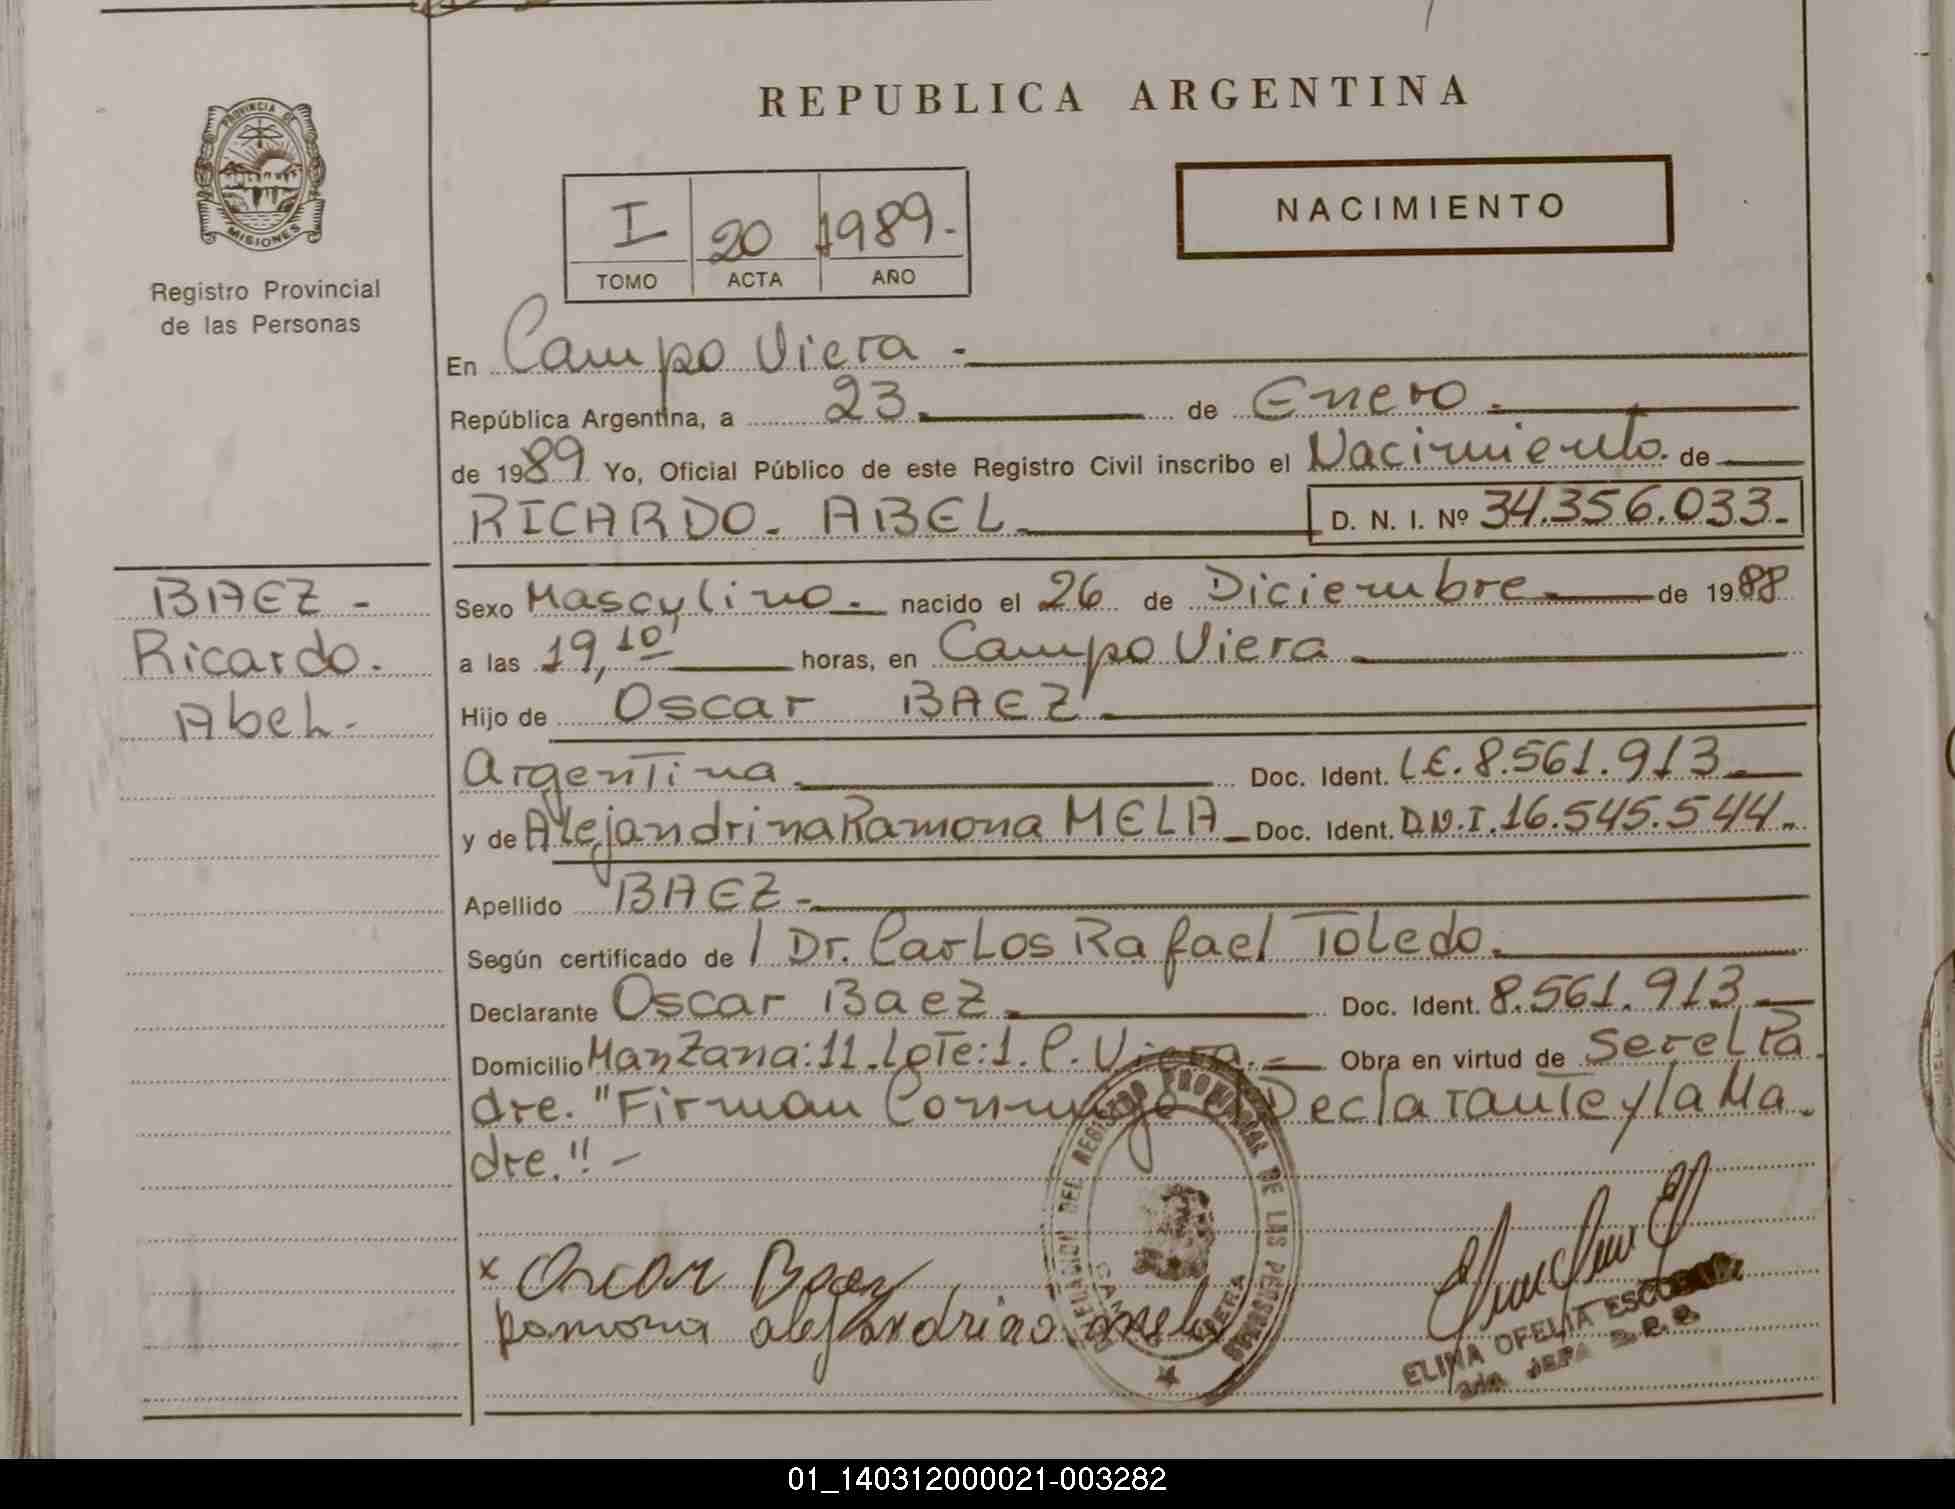 REPUBLICA ARGENTINA
PROVINCIA DE
MISIONES
Registro Provincial
de las Personas
I 20 1989.-
TOMO ACTA AÑO
NACIMIENTO
En Campo Viera.-
República Argentina, a 23. de Enero.
de 1989 Yo, Oficial Público de este Registro Civil inscribo el Nacimiento. de
RICARDO. ABEL. D. N. I. Nº 34.356.033.-
BAEZ -
Ricardo.
Abel.-
Sexo Masculino.- nacido el 26 de Diciembre de 1988
a las 19,10' horas, en Campo Viera
Hijo de Oscar BAEZ
Argentina. Doc. Ident. L.E. 8.561.913
y de Alejandrina Ramona MELA Doc. Ident. D.N.I. 16.545.544.-
Apellido BAEZ-
Según certificado de / Dr. Carlos Rafael Toledo.
Declarante Oscar Baez Doc. Ident. 8.561.913
Domicilio Manzana:11.Lote:1. C. Viera.- Obra en virtud de Ser el Pa
dre. "Firman Conmigo el Declarante y la Ma.
dre."-
x Oscar Baez
Ramona alejandrina mela
DELEGACION DEL REGISTRO PROVINCIAL DE LAS PERSONAS
CAMPO VIERA
ELINA OFELIA
JEFA
01_140312000021-003282